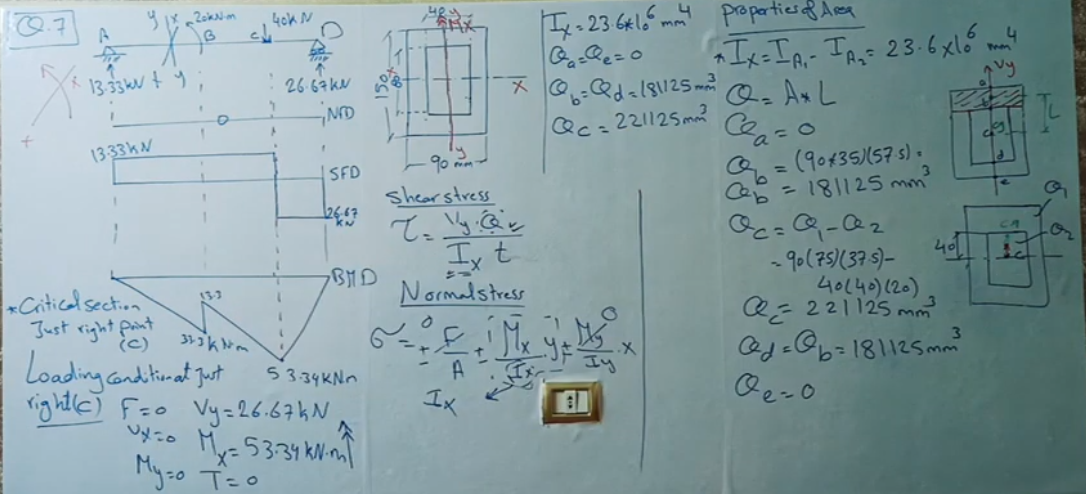 Q.7
A
y
x
20kN·m
B
C
40kN
D
13.33kN
y
26.67kN
x
+
O
NFD
13.33kN
SFD
26.67
kN
BMD
13.3
33.3kN·m
53.34kN·m
*Critical section
Just right point
(C)
Loading condition at Just
right(C)
F=0 Vy=26.67kN
Vx=0 Mx=53.34kN·m
My=0 T=0
40
y
Mx
150
80
x
x
90mm
y
Shear stress
τ = Vy·Q / Ix t
Normal stress
σ = ± F/A ± Mx/Ix y ± My/Iy x
0
0
Ix
Ix=23.6*10⁶ mm⁴
Qa=Qe=0
Qb=Qd=181125mm³
Qc=221125mm³
Properties of Area
*Ix=IA₁-IA₂=23.6×10⁶ mm⁴
Q=A*L
Qa=0
Qb=(90*35)(57.5)=
Qb=181125mm³
Qc=Q₁-Q₂
=90(75)(37.5)-
40(40)(20)
Qc=221125mm³
Qd=Qb=181125mm³
Qe=0
Vy
L
d
e
Q₁
Q₂
40
c